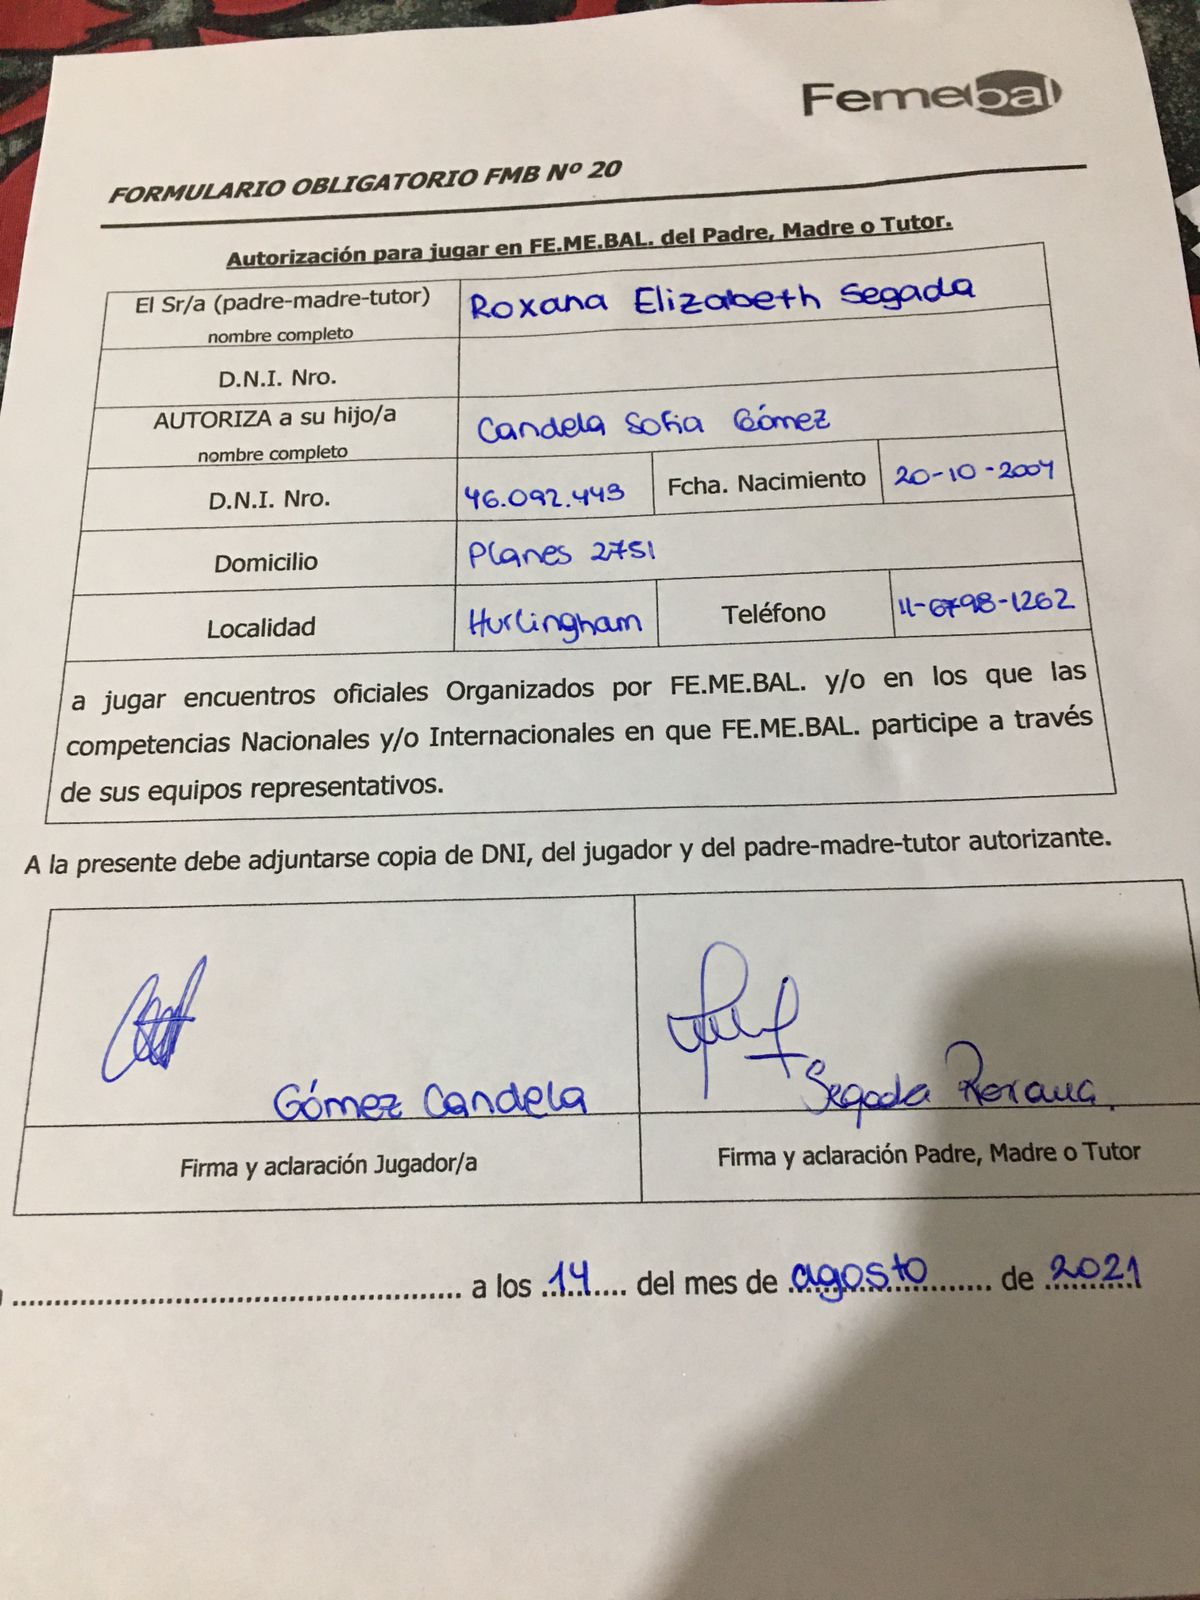 Femebal
FORMULARIO OBLIGATORIO FMB Nº 20
Autorización para jugar en FE.ME.BAL. del Padre, Madre o Tutor.
El Sr/a (padre-madre-tutor) Roxana Elizabeth Segada
nombre completo
D.N.I. Nro.
AUTORIZA a su hijo/a Candela Sofia Gómez
nombre completo
D.N.I. Nro. 46.092.443 Fcha. Nacimiento 20-10-2004
Domicilio Planes 2751
Localidad Hurlingham Teléfono 11-6798-1262
a jugar encuentros oficiales Organizados por FE.ME.BAL. y/o en los que las
competencias Nacionales y/o Internacionales en que FE.ME.BAL. participe a través
de sus equipos representativos.
A la presente debe adjuntarse copia de DNI, del jugador y del padre-madre-tutor autorizante.
Gómez Candela Segada Roxana
Firma y aclaración Jugador/a Firma y aclaración Padre, Madre o Tutor
a los 14 del mes de agosto de 2021